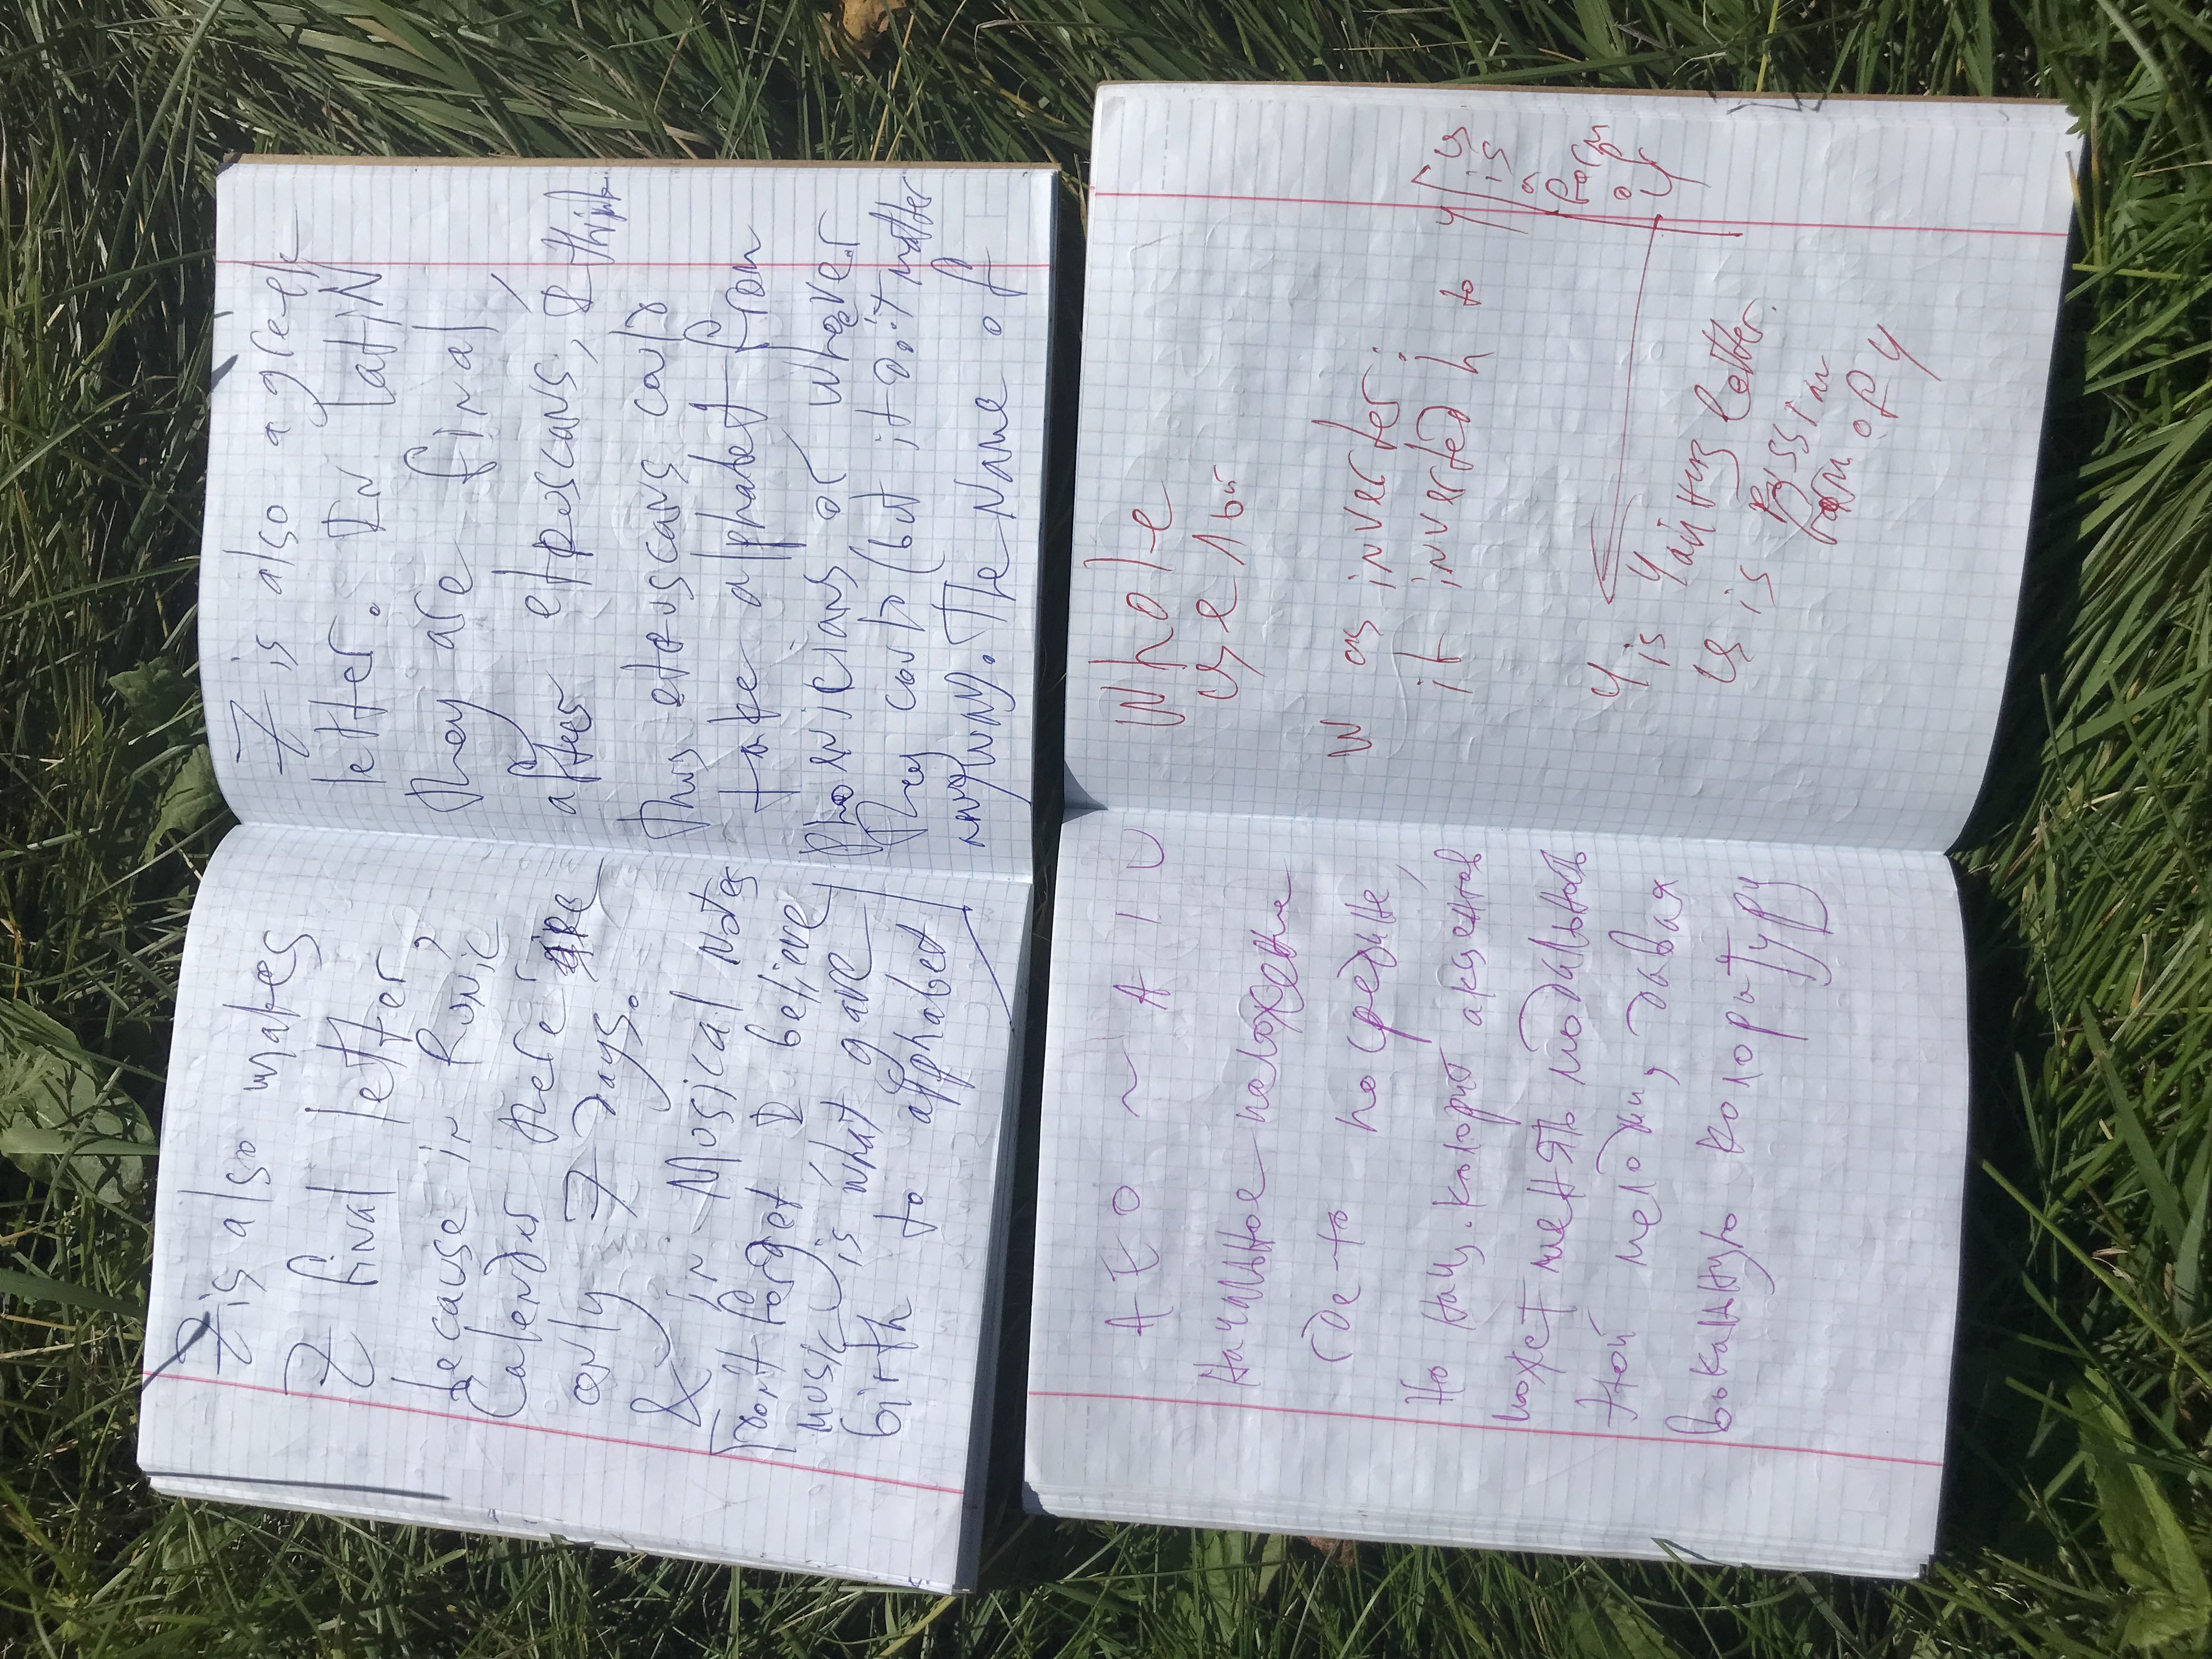 7 is also makes
Z final letter,
because in Runic
Calendar there are
only 7 days.
& in Musical Notes
Don't forget, I believe
music is what gave
birth to alphabet
7 is also a greek
letter. In latin
they are final,
after etruscans, I think
thus etruscans could
take alphabet from
phoenicians or whoever
they could (but it don't matter
anyway. The Name of
A E O ~ A I U
Начальное положение
где-то посредине,
но нац. колорит акцентов
может менять модальность
этой мелодии, давая
вокальную колоратуру
Whole
целый
W as inverter:
it inverted h to ч
ц
is
a
form
of
ч
Ч is Чайниз letter.
Ц is russian
form of ч